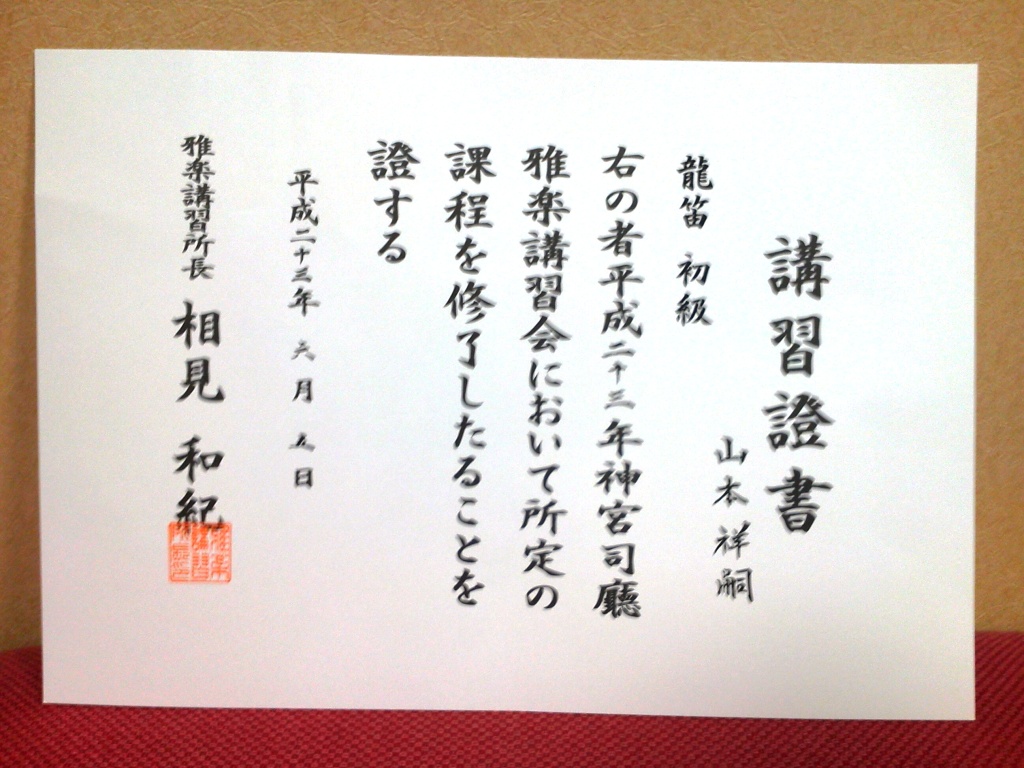 講習證書
山本祥嗣
龍笛 初級
右の者平成二十三年神宮司廳
雅楽講習会において所定の
課程を修了したることを
證する
平成二十三年 六月 五日
雅楽講習所長 相見 和紀